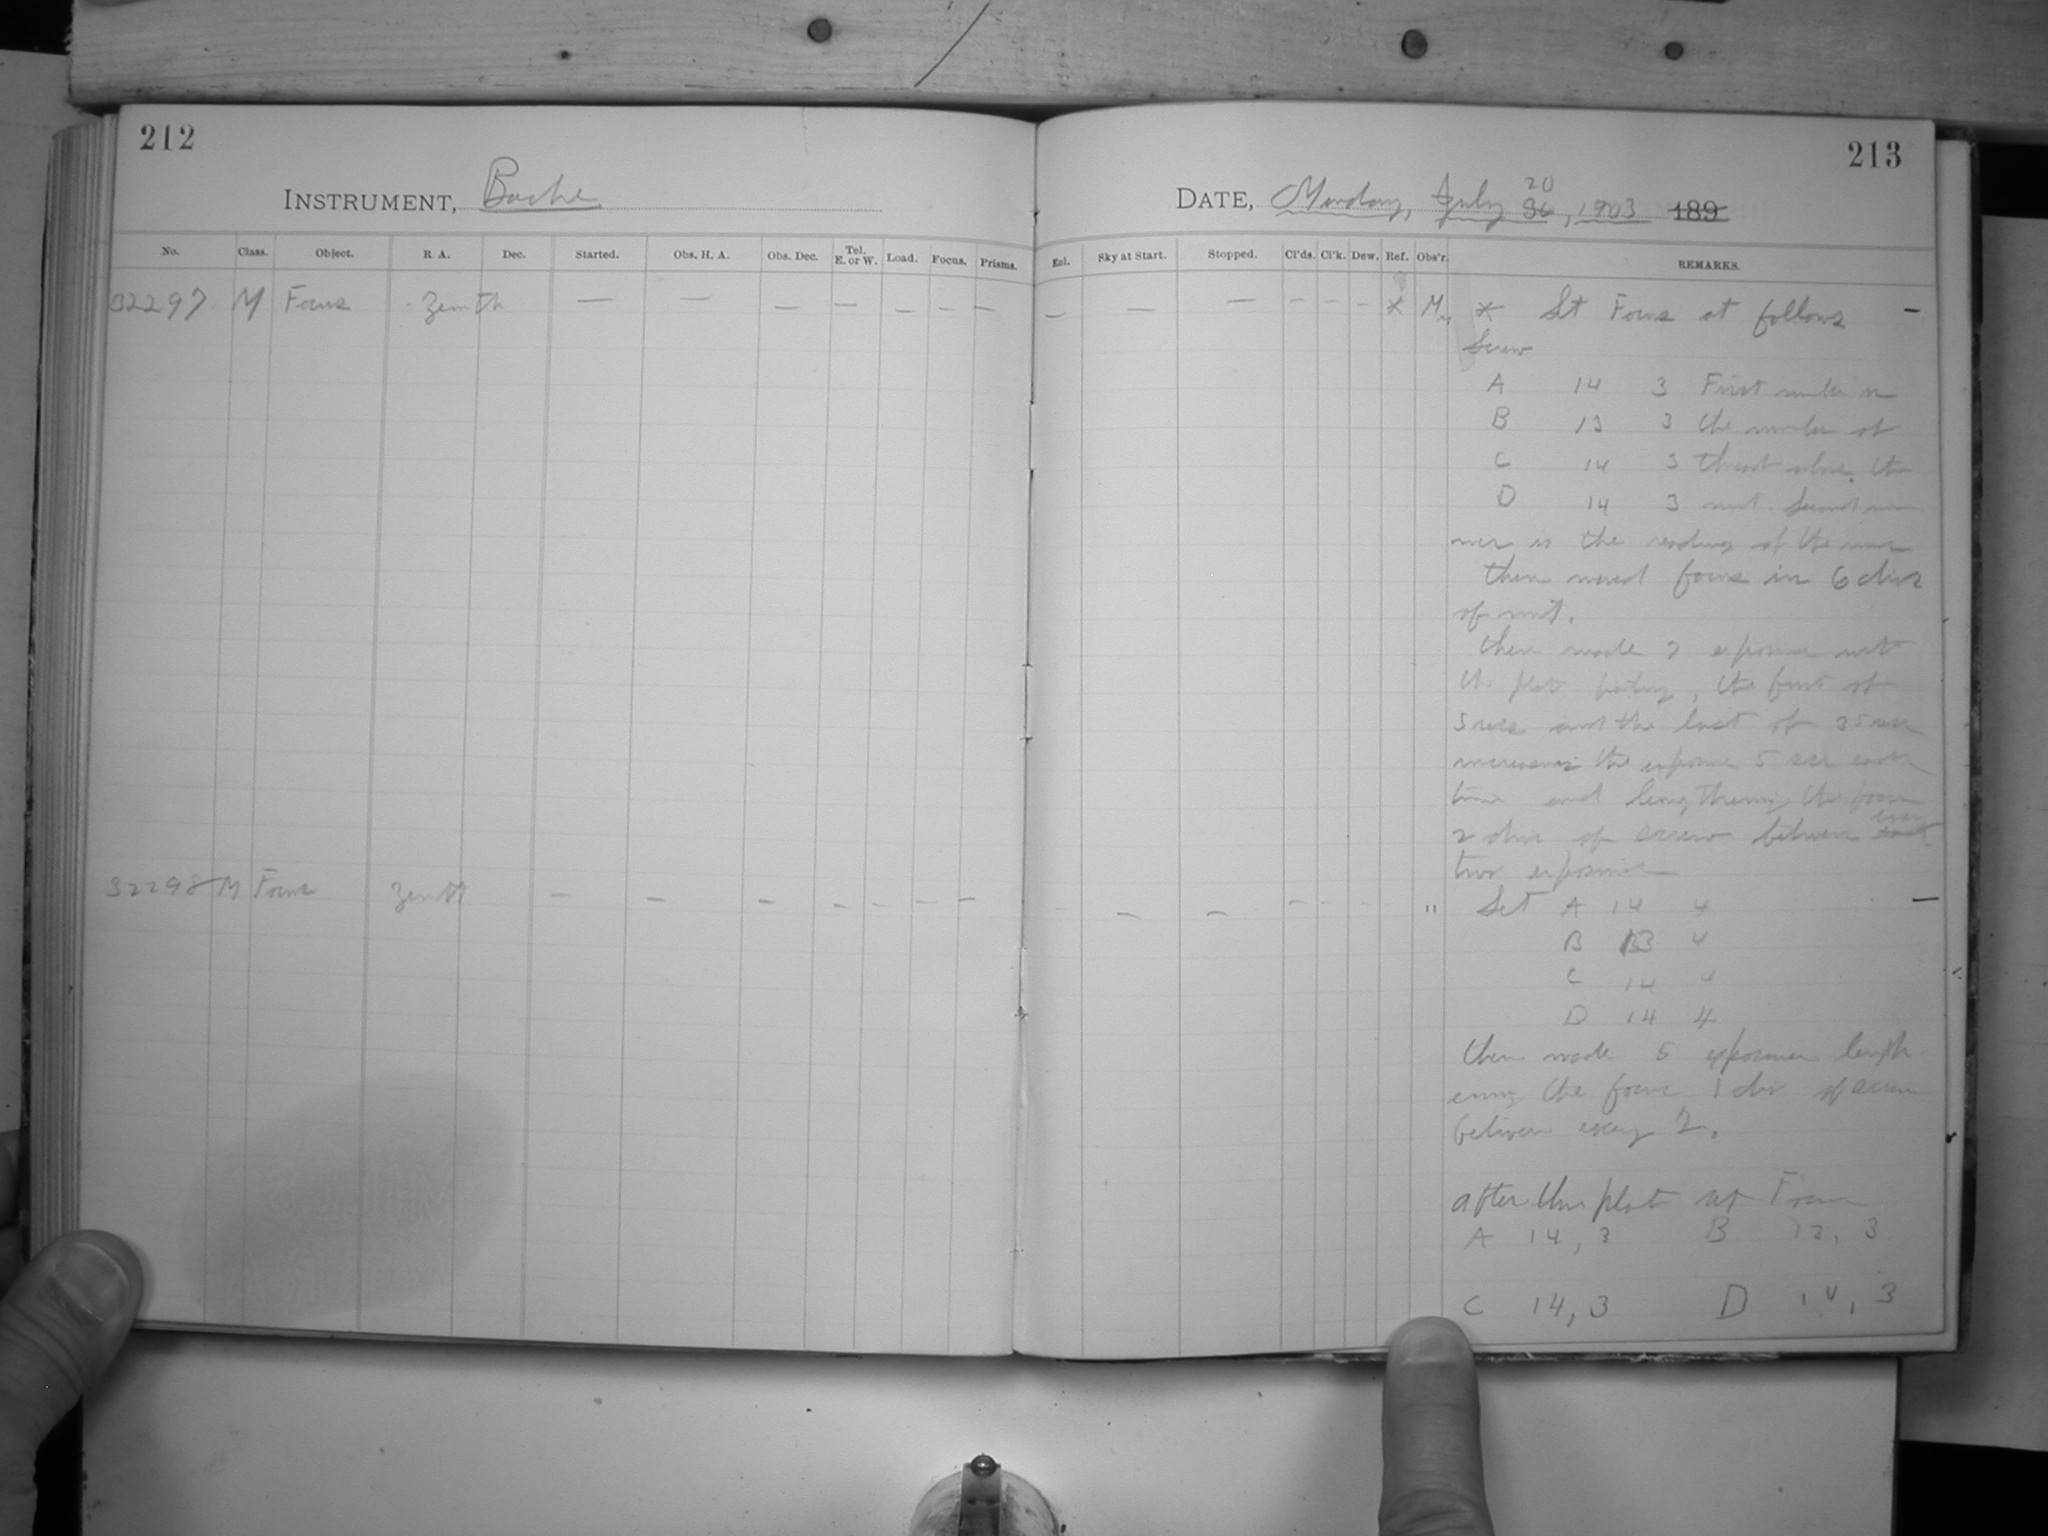 212
213
INSTRUMENT, Bache
DATE, Monday, July 20 36, 1903 189
No. Class. Object. R. A. Dec. Started. Obs. H. A. Obs. Dec. Tel. E. or W. Load. Focus. Prisms. Eol. Sky at Start. Stopped. Cl'ds. Cl'k. Dew. Ref. Obs'r. REMARKS.
32297 M Focus Zenith — — — — — — — — — — — — — * M * Set Focus at follows —
Screw
A 14 3 First number is
B 13 3 the number of
C 14 3 thread above the
D 14 3 nut. Second num
ber is the reading of the nut
then moved focus in 6 divs
of nut.
then made 7 exposures with
the plate, the first of
5 secs and the last of 35 sec
increasing the exposure 5 sec each
time and lengthening the focus
2 divs of screw between each every
two exposures
32298 M Focus Zenith — — — — — — — — — — — — — " Set A 14 4 —
B 13 4
C 14 4
D 14 4
then made 5 exposures length
ening the focus 1 div of screw
between every 2.
after this plate set Focus
A 14, 3 B 13, 3
C 14, 3 D 14, 3